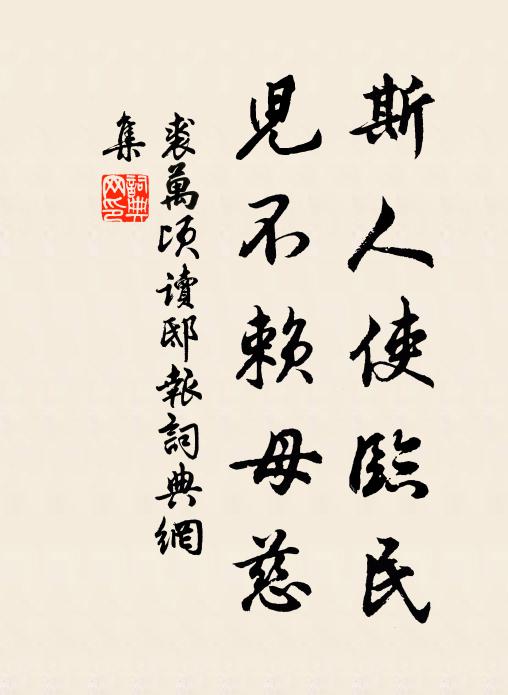 斯人使臨民
兒不賴母慈
裘萬頃讀邸報詞典網
集
詞典網印